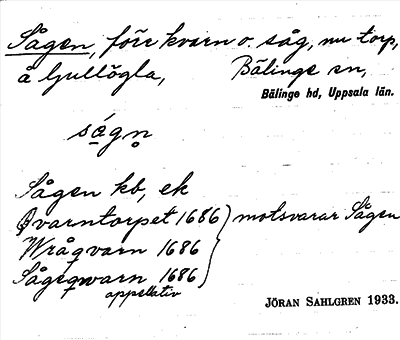 Sågen, före kvarn o. såg, nu torp,
å Ljullögla, Bälinge sn,
Bälinge hd, Uppsala län.
ságn̥
Sågen kb, ek
Qvarntorpet 1686 } motsvarar Sågen
Wråqvarn 1686
Sågeqwarn 1686
appellativ
JÖRAN SAHLGREN 1933.